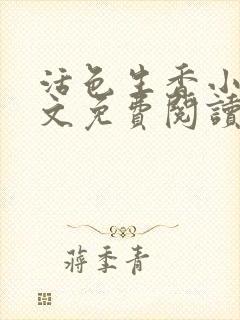 活色生香小
文免費閱讀
蔣季青